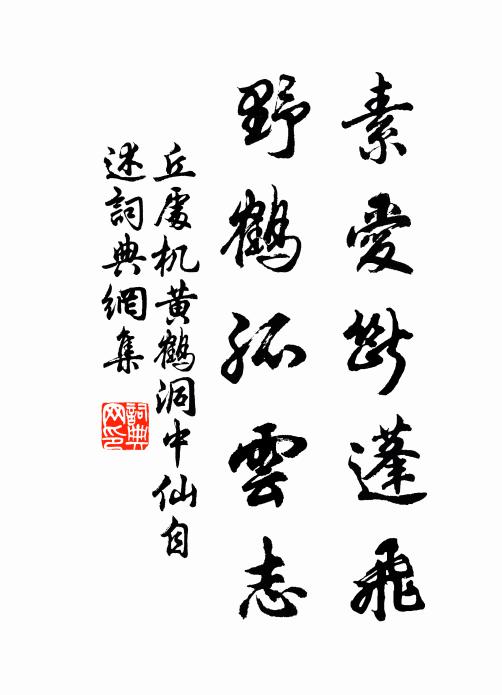 素愛斷蓬飛
野鶴孤雲志
丘處机黃鶴洞中仙自
述詞典網集
詞典网印